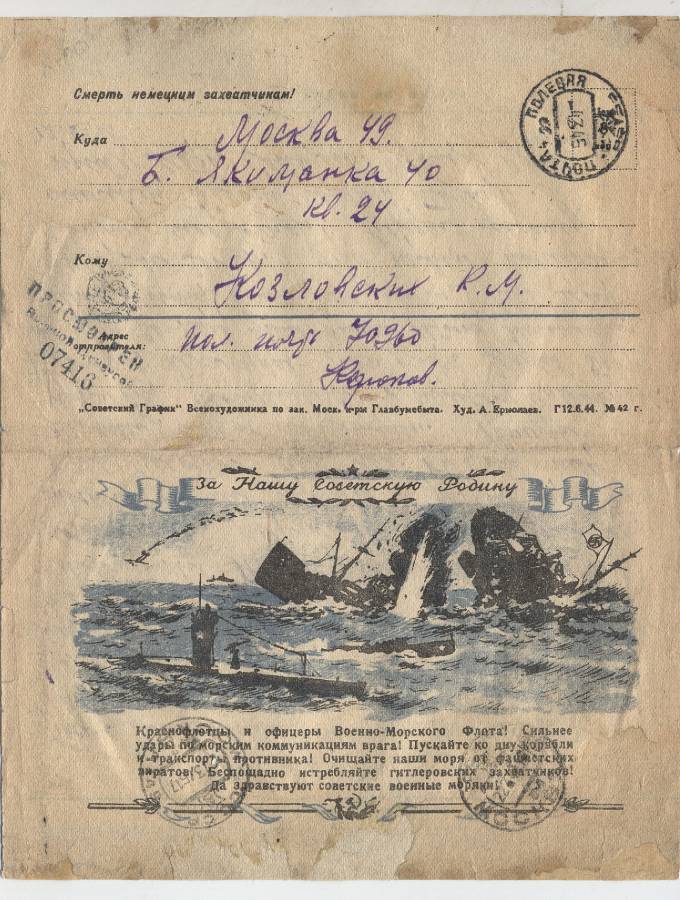 Смерть немецким захватчикам!
ПОЛЕВАЯ ПОЧТА
Куда Москва 49.
Б. Якиманка 40
кв. 24
Кому
Козловских К. М.
ПРОСМОТРЕНО
Военной Цензурой
07416
Адрес отправителя: пол. почта 70960
„Советский График“ Всекохудожника по зак. Моск. к-ры Главбумсбыта. Худ. А. Ермолаев. Г12.6.44. № 42 г.
За Нашу Советскую Родину
Краснофлотцы и офицеры Военно-Морского Флота! Сильнее
удары по морским коммуникациям врага! Пускайте ко дну корабли
и транспорты противника! Очищайте наши моря от фашистских
пиратов! Беспощадно истребляйте гитлеровских захватчиков!
Да здравствуют советские военные моряки!
МОСКВА